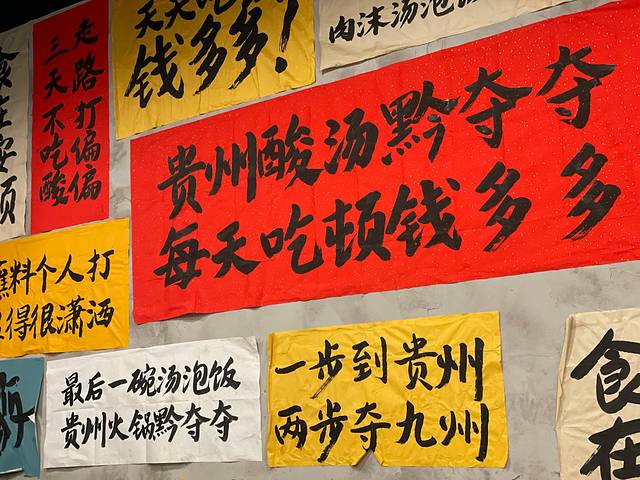 三天不吃酸
走路打偏偏
天天吃
钱多多!
肉沫汤泡饭
贵州酸汤黔夺夺
每天吃顿钱多多
蘸料个人打
得很潇洒
最后一碗汤泡饭
贵州火锅黔夺夺
一步到贵州
两步夺九州
食在